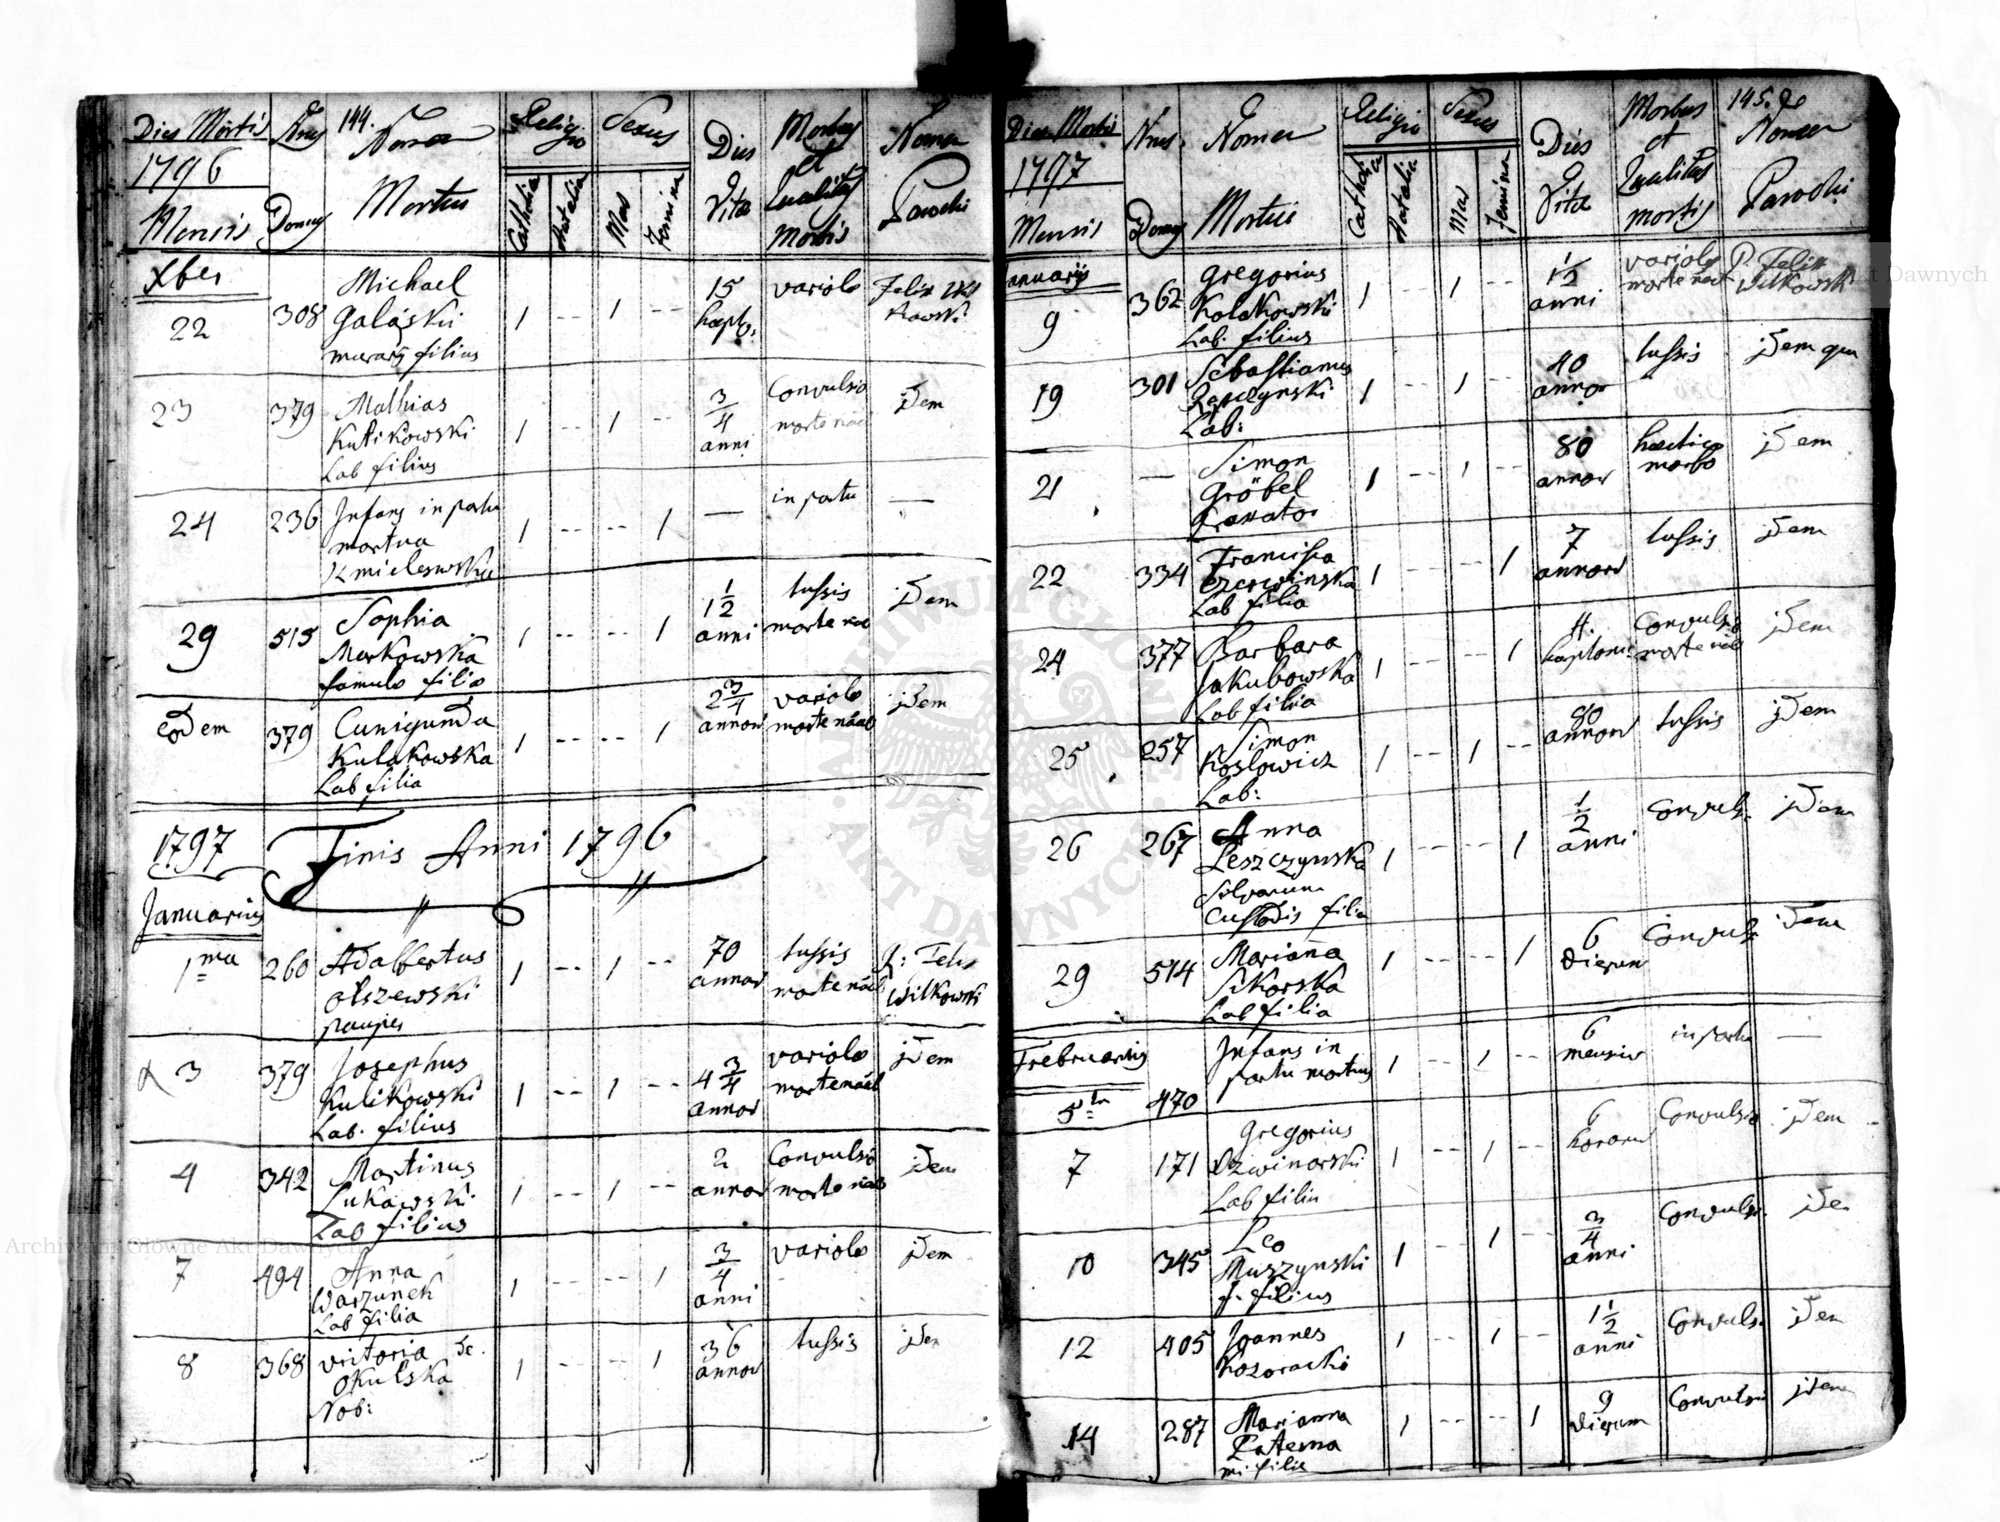 Dies Mortis
1796
Mensis
Nrus
Domus
144.
Nomen
Mortui
Religio
Catholica
Sexus
Mas
Femina
Dies
Vitæ
Morbus
et
Qualitas
Mortis
Nomen
Parochi
Xber
22
308
Michael
Galaski
murarij filius
1 -- 1
15
hepto:
variolæ
Felix
23
379
Mathias
Kulikowski
Lab filius
1 -- 1 --
3/4
anni
Convulsio
morte nāa
jdem
24
236
Infans in partu
mortua
1 -- -- 1
—
in partu
—
29
515
Sophia
Markowska
famulæ filia
1 -- -- 1
1 1/2
anni
tussis
morte nāa
jdem
eodem
379
Cunigunda
Kulakowska
Lab filia
1 -- -- 1
2 3/4
annor
variolæ
morte nāa
jdem
1797
Finis Anni 1796
Januarius
1ma
260
Adalbertus
Olszewski
pauper
1 -- 1 --
70
annor
tussis
morte nāa
Felix
Wilkowski
3
379
Josephus
Kulikowski
Lab. filius
1 -- 1 --
4 3/4
annor
variolæ
morte nāa
jdem
4
342
Martinus
Lukawski
Lab filius
1 -- 1 --
2
annor
Convulsio
morte nāa
jdem
7
494
Anna
Warzunek
Lab filia
1 -- -- 1
3/4
anni
variolæ
jdem
8
368
Victoria de
Okulska
Nob:
1 -- -- 1
36
annor
tussis
jdem
Dies Mortis
1797
Mensis
Nrus.
Domus
Nomen
Mortui
Religio
Catholica
Sexus
Mas
Femina
Dies
Vitæ
Morbus
et
Qualitas
mortis
145.
Nomen
Parochi
anuarij
9
362
Gregorius
Kolakowski
Lab. filius
1 -- 1
1/2
anni
variolæ
morte nāa
P. Felix
Wilkowski
19
301
Sebastianus
Lab:
1 -- 1 --
40
annor
tussis
jdem qui
21
—
Simon
Gröbel
1 -- 1 --
80
annor
hectico
morbo
jdem
22
334
Francisca
Czerwinska
Lab filia
1 -- -- 1
7
annor
tussis
jdem
24
377
Barbara
Jakubowska
Lab filia
1 -- -- 1
4.
Convulsio
morte nāa
jdem
25
257
Simon
Koslowicz
Lab:
1 -- 1 --
80
annor
tussis
jdem
26
267
Anna
Leszczynska
Silvarum
Custodis filia
1 -- -- 1
1/2
anni
Convuls.
jdem
29
514
Marianna
Sikorska
Lab filia
1 -- -- 1
6
dierum
Convuls
jdem
Februarius
5ta
470
Infans in
partu mortuus
1 -- 1 --
6
mensiu
in partu
—
7
171
Gregorius
Lab filiu
1 -- 1 --
6
horaru
Convulsio
jdem
10
345
Leo
Muszynski
f. filius
1 -- 1
3/4
anni
Convulsi.
jde
12
405
Joannes
1 -- 1 --
1 1/2
anni
Convuls.
jdem
14
287
Marianna
Paterna
mi filia
1 -- -- 1
9
dierum
Convulsio
jdem
ARCHIWUM GŁÓWNE AKT DAWNYCH
Archiwum Główne Akt Dawnych
Archiwum Główne Akt Dawnych